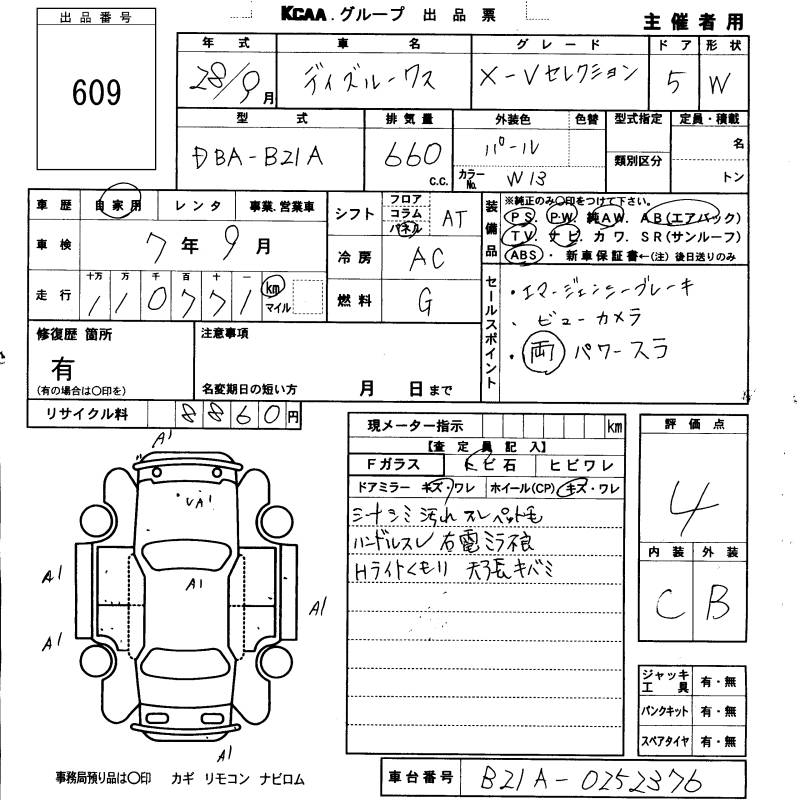 KCAA.グループ 出品票
主催者用
出品番号
609
年式 車名 グレード ドア 形状
28/9月 デイズルークス X-Vセレクション 5 W
型式 排気量 外装色 色替 型式指定 定員・積載
DBA-B21A 660 c.c. パール 類別区分 名
カラーNo. W13 トン
車歴 自家用 レンタ 事業.営業車
車検 7年9月
十万 万 千 百 十 一
走行 110771 km マイル
シフト フロア コラム パネル AT
冷房 AC
燃料 G
装備品
※純正のみ○印をつけて下さい。
PS. PW. 純AW. AB(エアバック)
TV. ナビ. カワ. SR(サンルーフ)
ABS・ 新車保証書←(注)後日送りのみ
セールスポイント
・エマージェンシーブレーキ
・ビューカメラ
・両パワースラ
修復歴 箇所
有
(有の場合は○印を)
注意事項
名変期日の短い方 月 日まで
リサイクル料 8860円
現メーター指示 km
【査定員記入】
Fガラス トビ石 ヒビワレ
ドアミラー キズ・ワレ ホイール(CP) キズ・ワレ
シートシミ汚れスレペット毛
ハンドルスレ 右電ミラ不良
Hライトくもり 天張キバミ
評価点
4
内装 外装
C B
ジャッキ工具 有・無
パンクキット 有・無
スペアタイヤ 有・無
A1
A1
A1
A1
A1
A1
A1
事務局預り品は○印 カギ リモコン ナビロム
車台番号 B21A-0252376